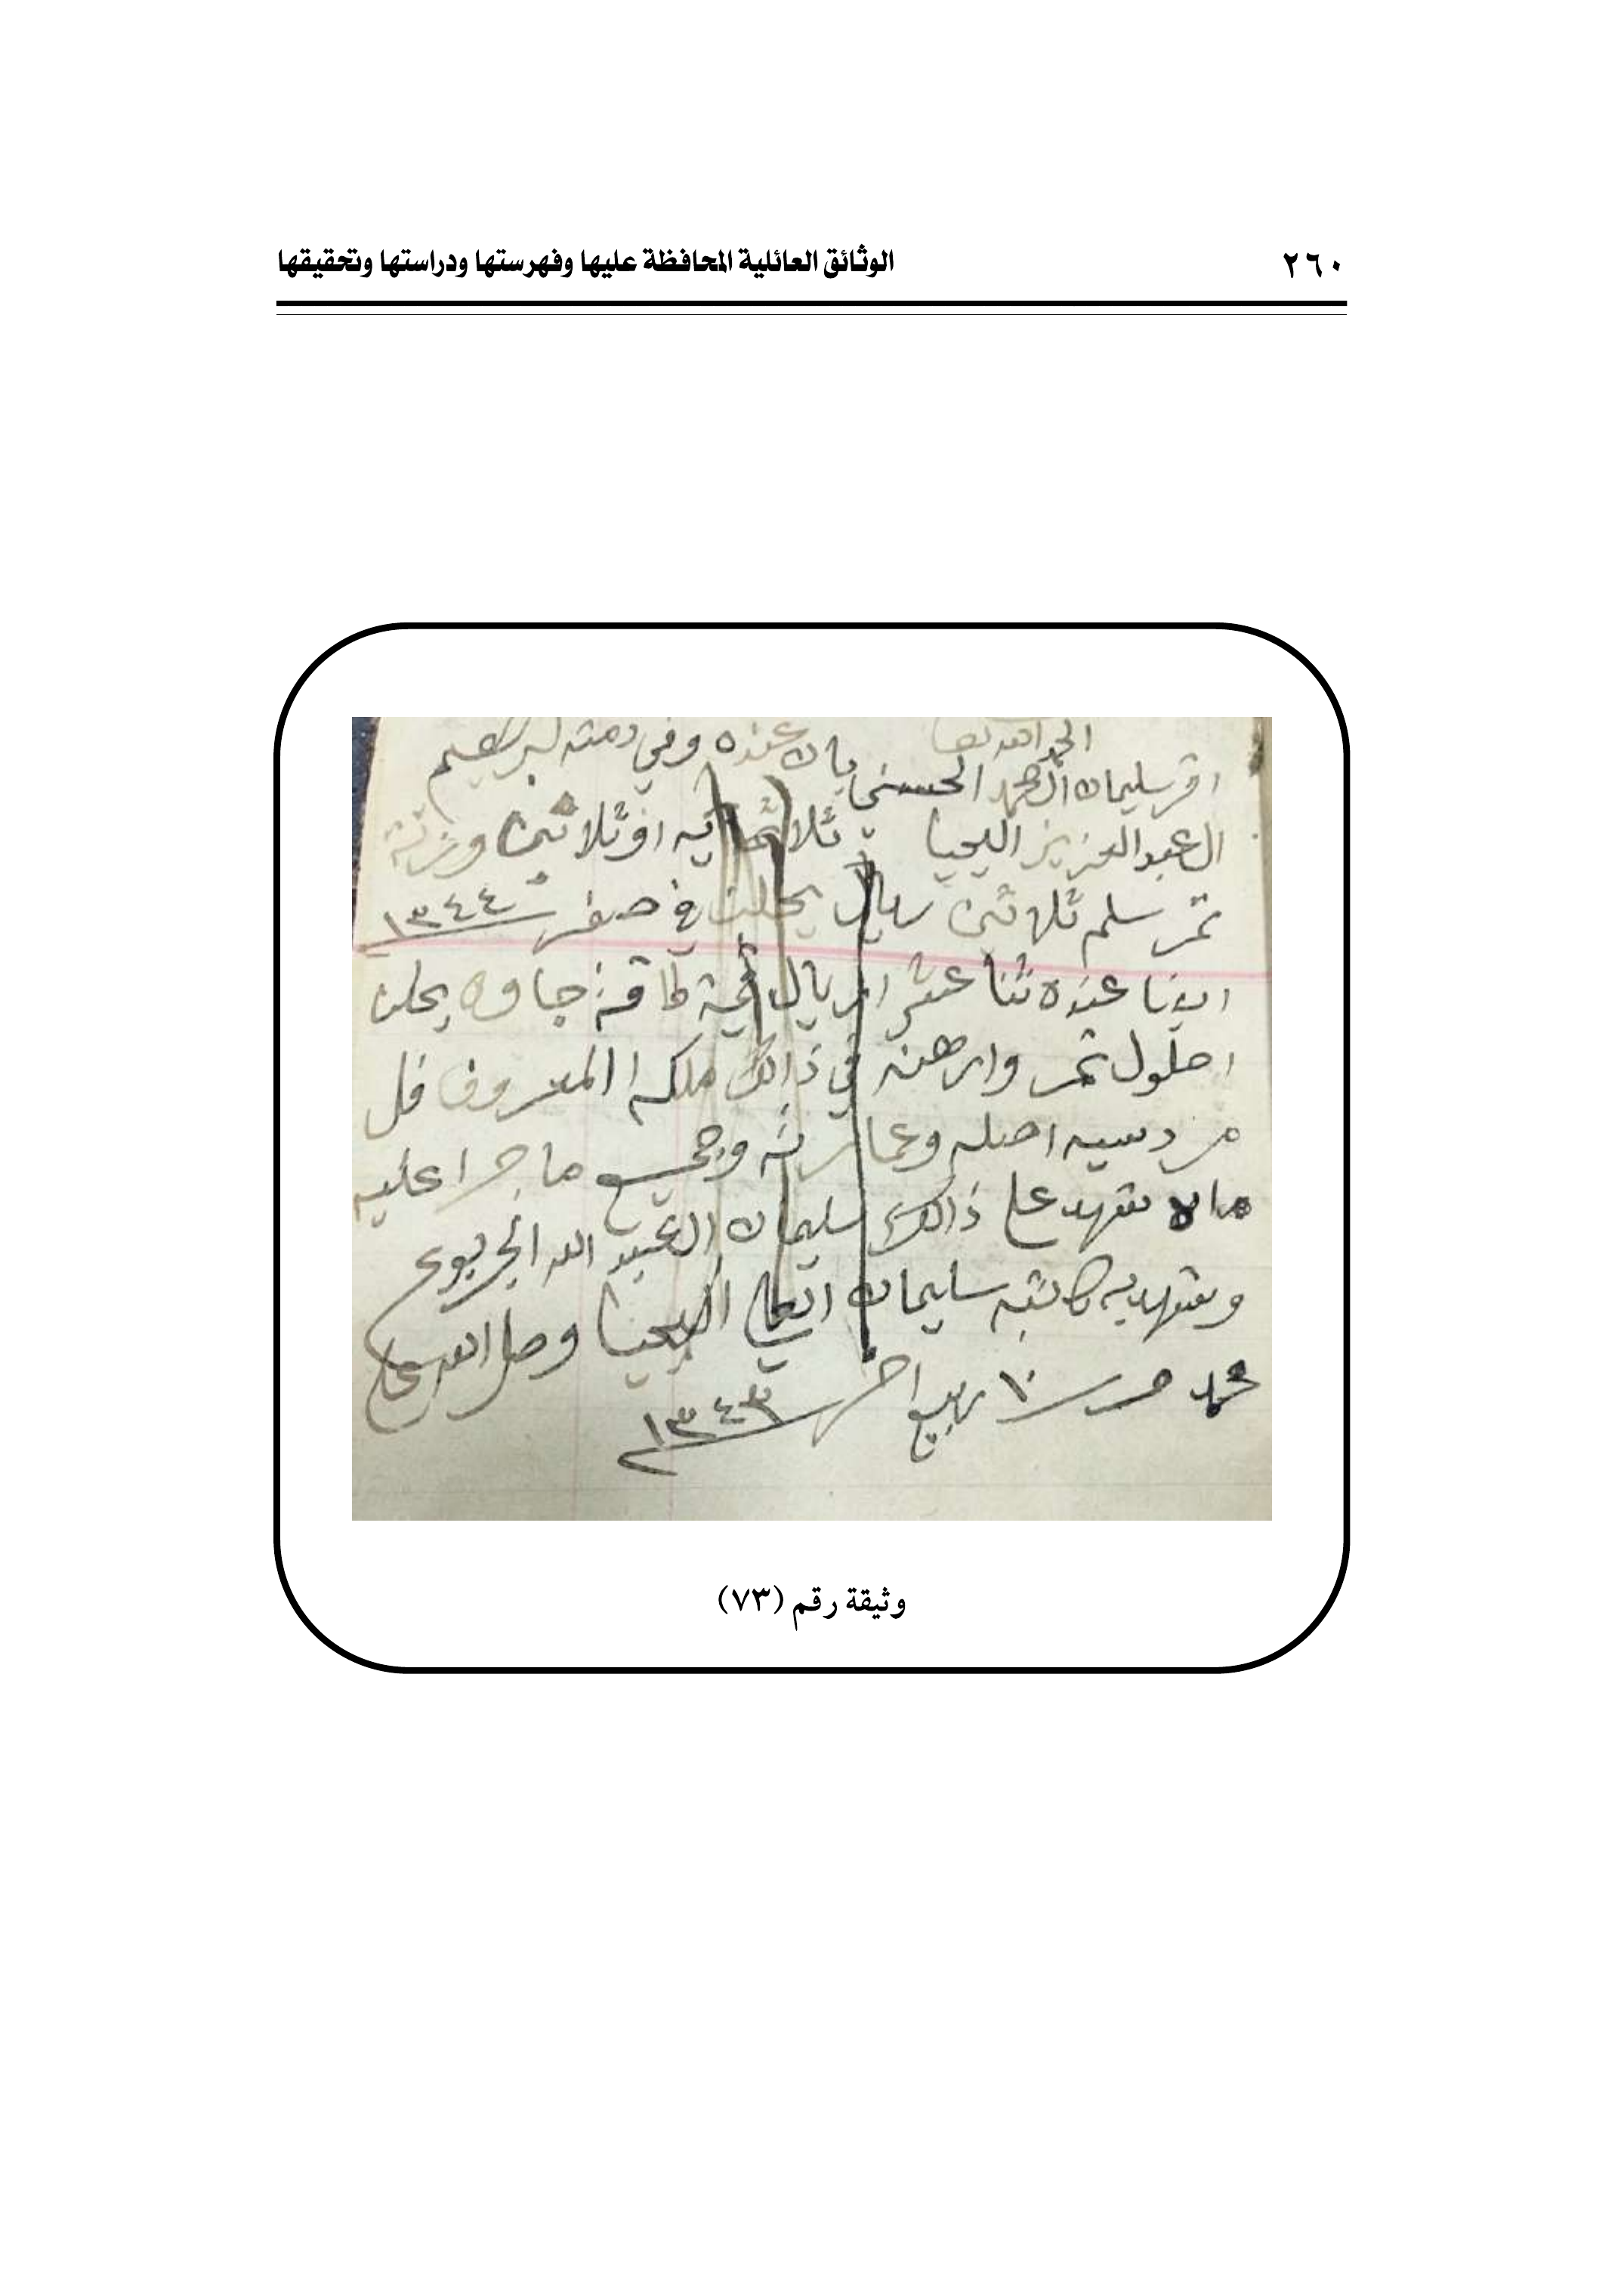 ٢٦٠
الوثائق العائلية المحافظة عليها وفهرستها ودراستها وتحقيقها
الحمد لله
اقر سليمان المحمد الحسني بان عنده وفي ذمته لبراهيم
العبد العزيز اليحيا ثلاثماية اوثلاثين وزنة
تمر سلم ثلاثين ريال يحلن في صفر ١٣٤٤
ايضا عنده ثنا عشر اريال قيمة طاقة جاوه يحلن
احلول تمر وارهنه في ذالك ملكه المعروف
اصله وعمارته وجميع ما جرا عليه
شهد على ذالك سليمان العبد الله الجربوع
وشهد به كاتبه سليمان العلي اليحيا وصل الله على
محمد حرر ١٠ ربيع اخر ١٣٤٣
وثيقة رقم (٧٣)